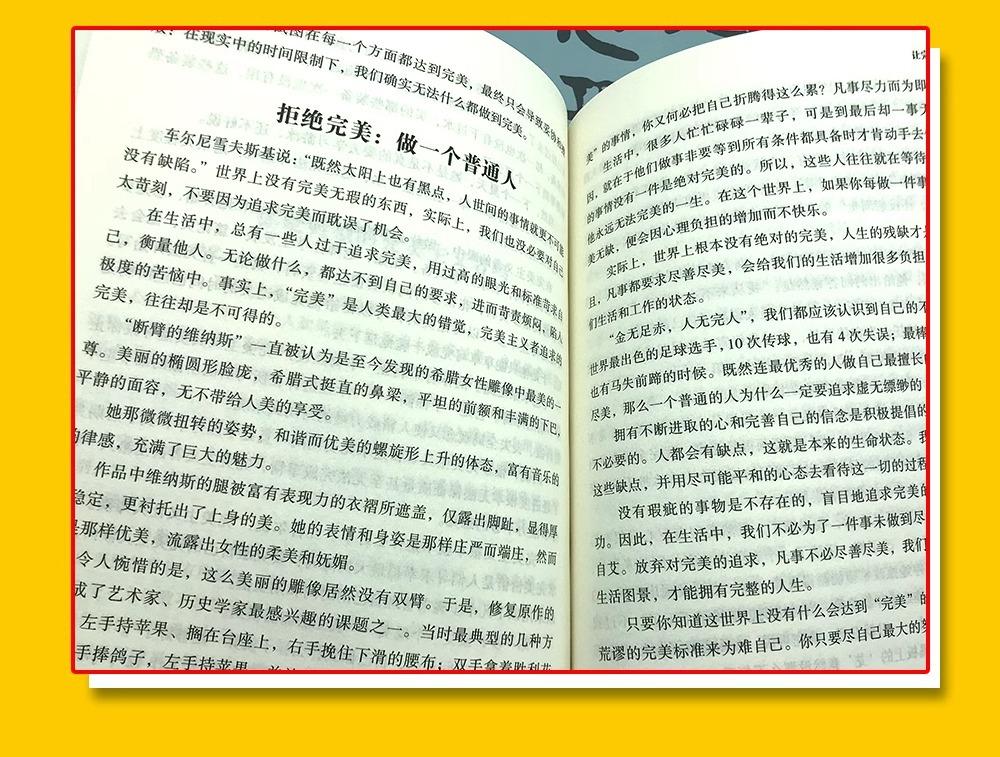 试图在每一个方面都达到完美，最终只会导致
在现实中的时间限制下，我们确实无法什么都做到完美。
拒绝完美：做一个普通人
车尔尼雪夫斯基说：“既然太阳上也有黑点，人世间的事情就更不可能
没有缺陷。”世界上没有完美无瑕的东西，实际上，我们也没必要对自己
太苛刻，不要因为追求完美而耽误了机会。
在生活中，总有一些人过于追求完美，用过高的眼光和标准苛求自
己，衡量他人。无论做什么，都达不到自己的要求，进而苛责烦闷，陷入
极度的苦恼中。事实上，“完美”是人类最大的错觉，完美主义者追求的
完美，往往却是不可得的。
“断臂的维纳斯”一直被认为是至今发现的希腊女性雕像中最美的一
尊。美丽的椭圆形脸庞，希腊式挺直的鼻梁，平坦的前额和丰满的下巴，
平静的面容，无不带给人美的享受。
她那微微扭转的姿势，和谐而优美的螺旋形上升的体态，富有音乐的
的律感，充满了巨大的魅力。
作品中维纳斯的腿被富有表现力的衣褶所遮盖，仅露出脚趾，显得厚
稳定，更衬托出了上身的美。她的表情和身姿是那样庄严而端庄，然而
是那样优美，流露出女性的柔美和妩媚。
令人惋惜的是，这么美丽的雕像居然没有双臂。于是，修复原作的
成了艺术家、历史学家最感兴趣的课题之一。当时最典型的几种方
左手持苹果、搁在台座上，右手挽住下滑的腰布；双手拿着胜利花
手捧鸽子，左手持苹果，
让完
美”的事情，你又何必把自己折腾得这么累？凡事尽力而为即
生活中，很多人忙忙碌碌一辈子，可是到最后却一事无
因，就在于他们做事非要等到所有条件都具备时才肯动手去
的事情没有一件是绝对完美的。所以，这些人往往就在等待
他永远无法完美的一生。在这个世界上，如果你每做一件事
美无缺，便会因心理负担的增加而不快乐。
实际上，世界上根本没有绝对的完美，人生的残缺才
且，凡事都要求尽善尽美，会给我们的生活增加很多负担
们生活和工作的状态。
“金无足赤，人无完人”，我们都应该认识到自己的不
世界最出色的足球选手，10次传球，也有4次失误；最棒
也有马失前蹄的时候。既然连最优秀的人做自己最擅长的
尽美，那么一个普通的人为什么一定要追求虚无缥缈的
拥有不断进取的心和完善自己的信念是积极提倡的
不必要的。人都会有缺点，这就是本来的生命状态。我
这些缺点，并用尽可能平和的心态去看待这一切的过程
没有瑕疵的事物是不存在的，盲目地追求完美的
功。因此，在生活中，我们不必为了一件事未做到尽
自艾。放弃对完美的追求，凡事不必尽善尽美，我们
生活图景，才能拥有完整的人生。
只要你知道这世界上没有什么会达到“完美”的
荒谬的完美标准来为难自己。你只要尽自己最大的努